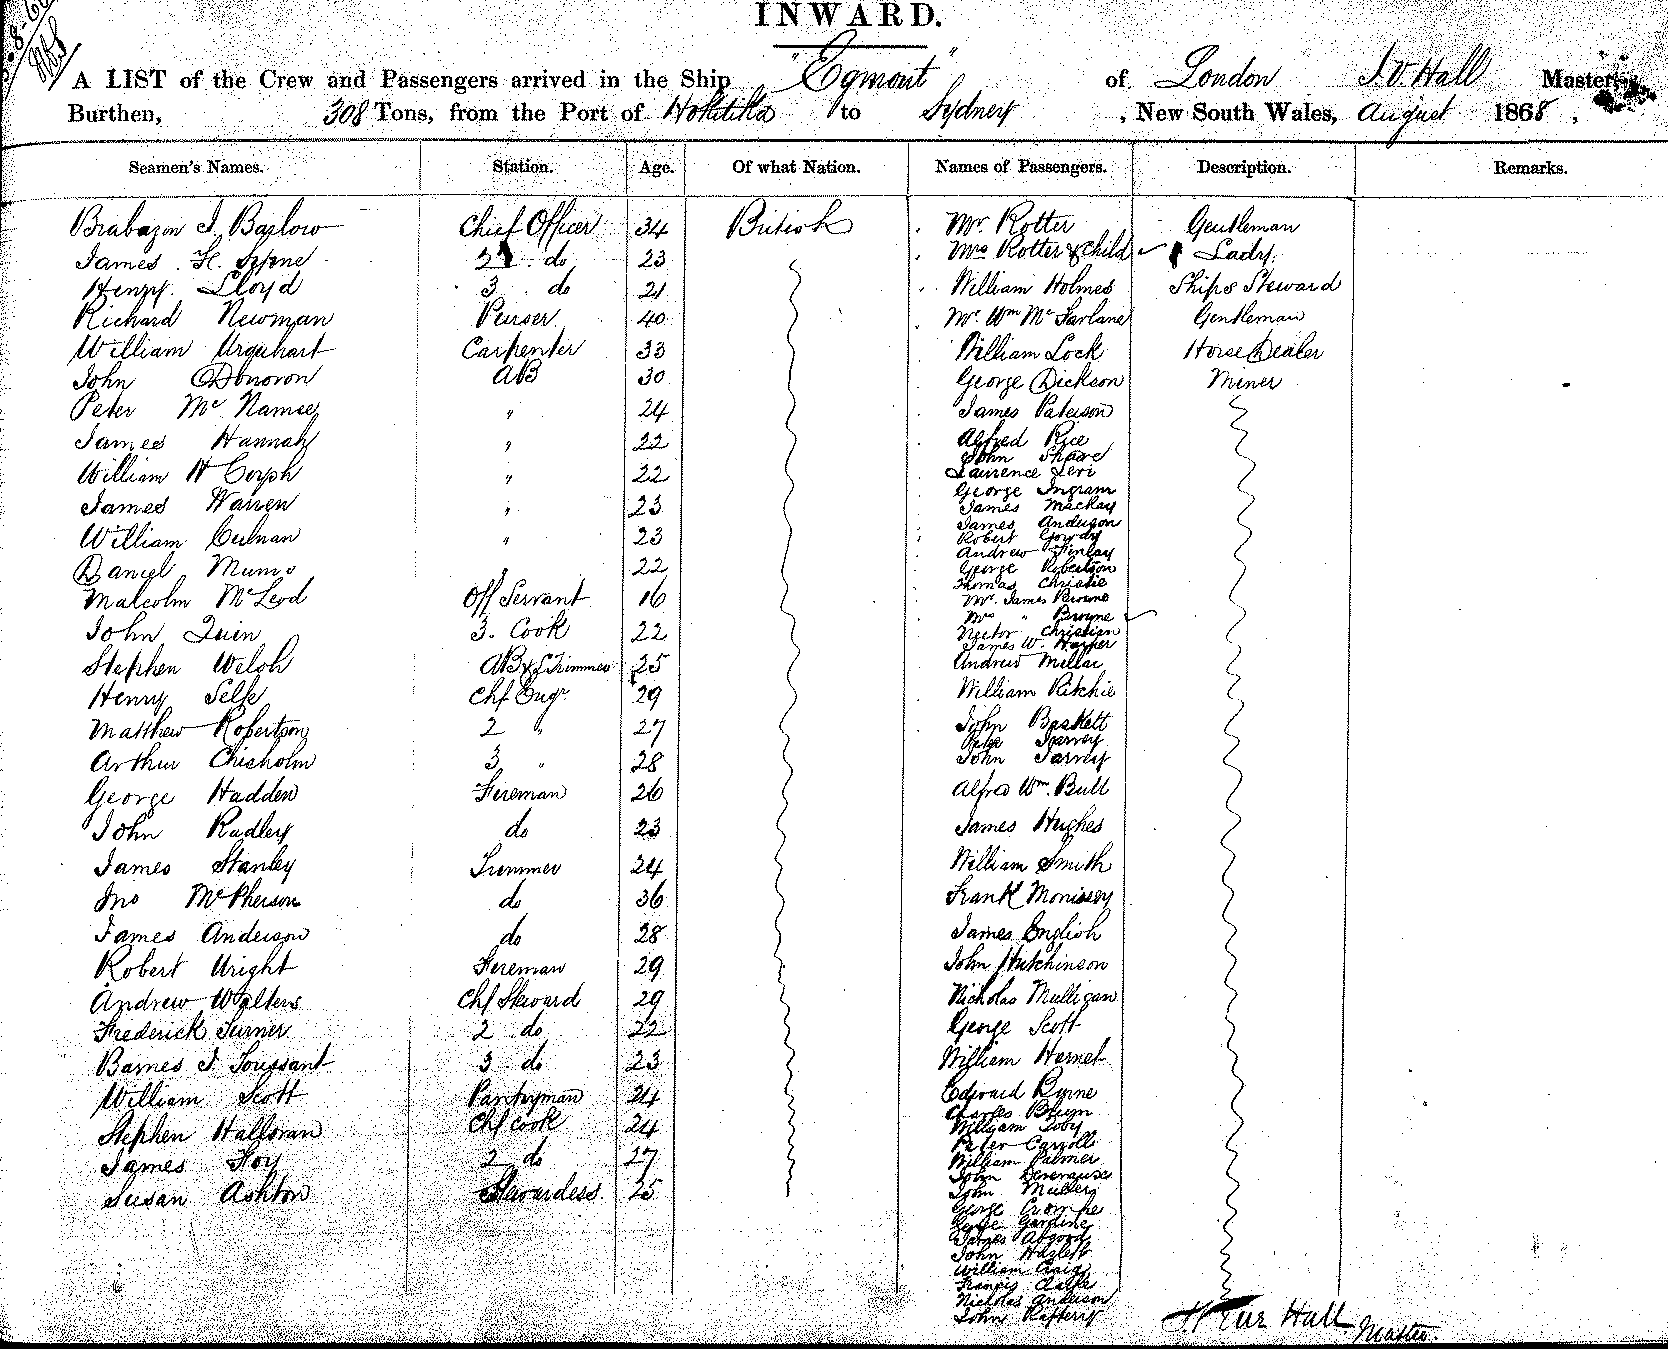 INWARD.
A LIST of the Crew and Passengers arrived in the Ship "Egmont" of London J. V Hall Master,
Burthen, 308 Tons, from the Port of Hokitika to Sydney , New South Wales, August 1868 ,
Seamen's Names. Station. Age. Of what Nation. Names of Passengers. Description. Remarks.
Brabazon J. Barlow Chief Officer 34 British Mr. Rotter Gentleman
James H. 2 do 23 Mrs Rotter & Child Lady.
Henry Lloyd 3 do 21 William Holmes Ships Steward
Richard Newman Purser 40 Mr. Wm McFarlane Gentleman
William Urquhart Carpenter 33 William Lock Horse Dealer
John ODonovon AB 30 George Dickson Miner
Peter McNamee " 24 James Paterson
James Hannah " 22 Alfred Rice
John Shaare
William H Corph " 22 Laurence Levi
George Ingram
James Warren " 23 James Mackay
James Anderson
William Culnan " 23 Robert Gowdy
Andrew Finlay
Daniel Munro " 22 George Robertson
Thomas Christie
Malcolm McLeod Off Servant 16 Mr. James Browne
Mrs " Browne
John Quin 3. Cook 22 Hector Christian
James W. Harper
Stephen Welch AB & Trimmer 25 Andrew Millar
Henry Selk Chf Engr. 29 William Ritchie
Matthew Robertson 2 " 27 John Baskett
Peter Jarvey
Arthur Chisholm 3 " 28 John Jarvey
George Hadden Fireman 26 Alfred Wm. Bull
John Radley do 23 James Hughes
James Stanley Trimmer 24 William Smith
Jno McPherson do 36 Frank Morrissey
James Anderson do 28 James English
Robert Wright Fireman 29 John Hutchinson
Andrew Walters Chf Steward 29 Nicholas Mulligan
Frederick Turner 2 do 22 George Scott
Barnes J Toussant 3 do 23 William Hornet
William Scott Pantryman 24 Edward Ryrne
Charles
Stephen Halloran Chf Cook 24 William Toby
Peter Carroll
James Hoy 2 do 27 William Palmer
John
Susan Ashton Stewardess 25 John Mullers
George Crompe
George Gardine
James
John Hazlett
William Craig
Francis Clarke
Nicholas Anderson
John Rafferty
Hall Master.